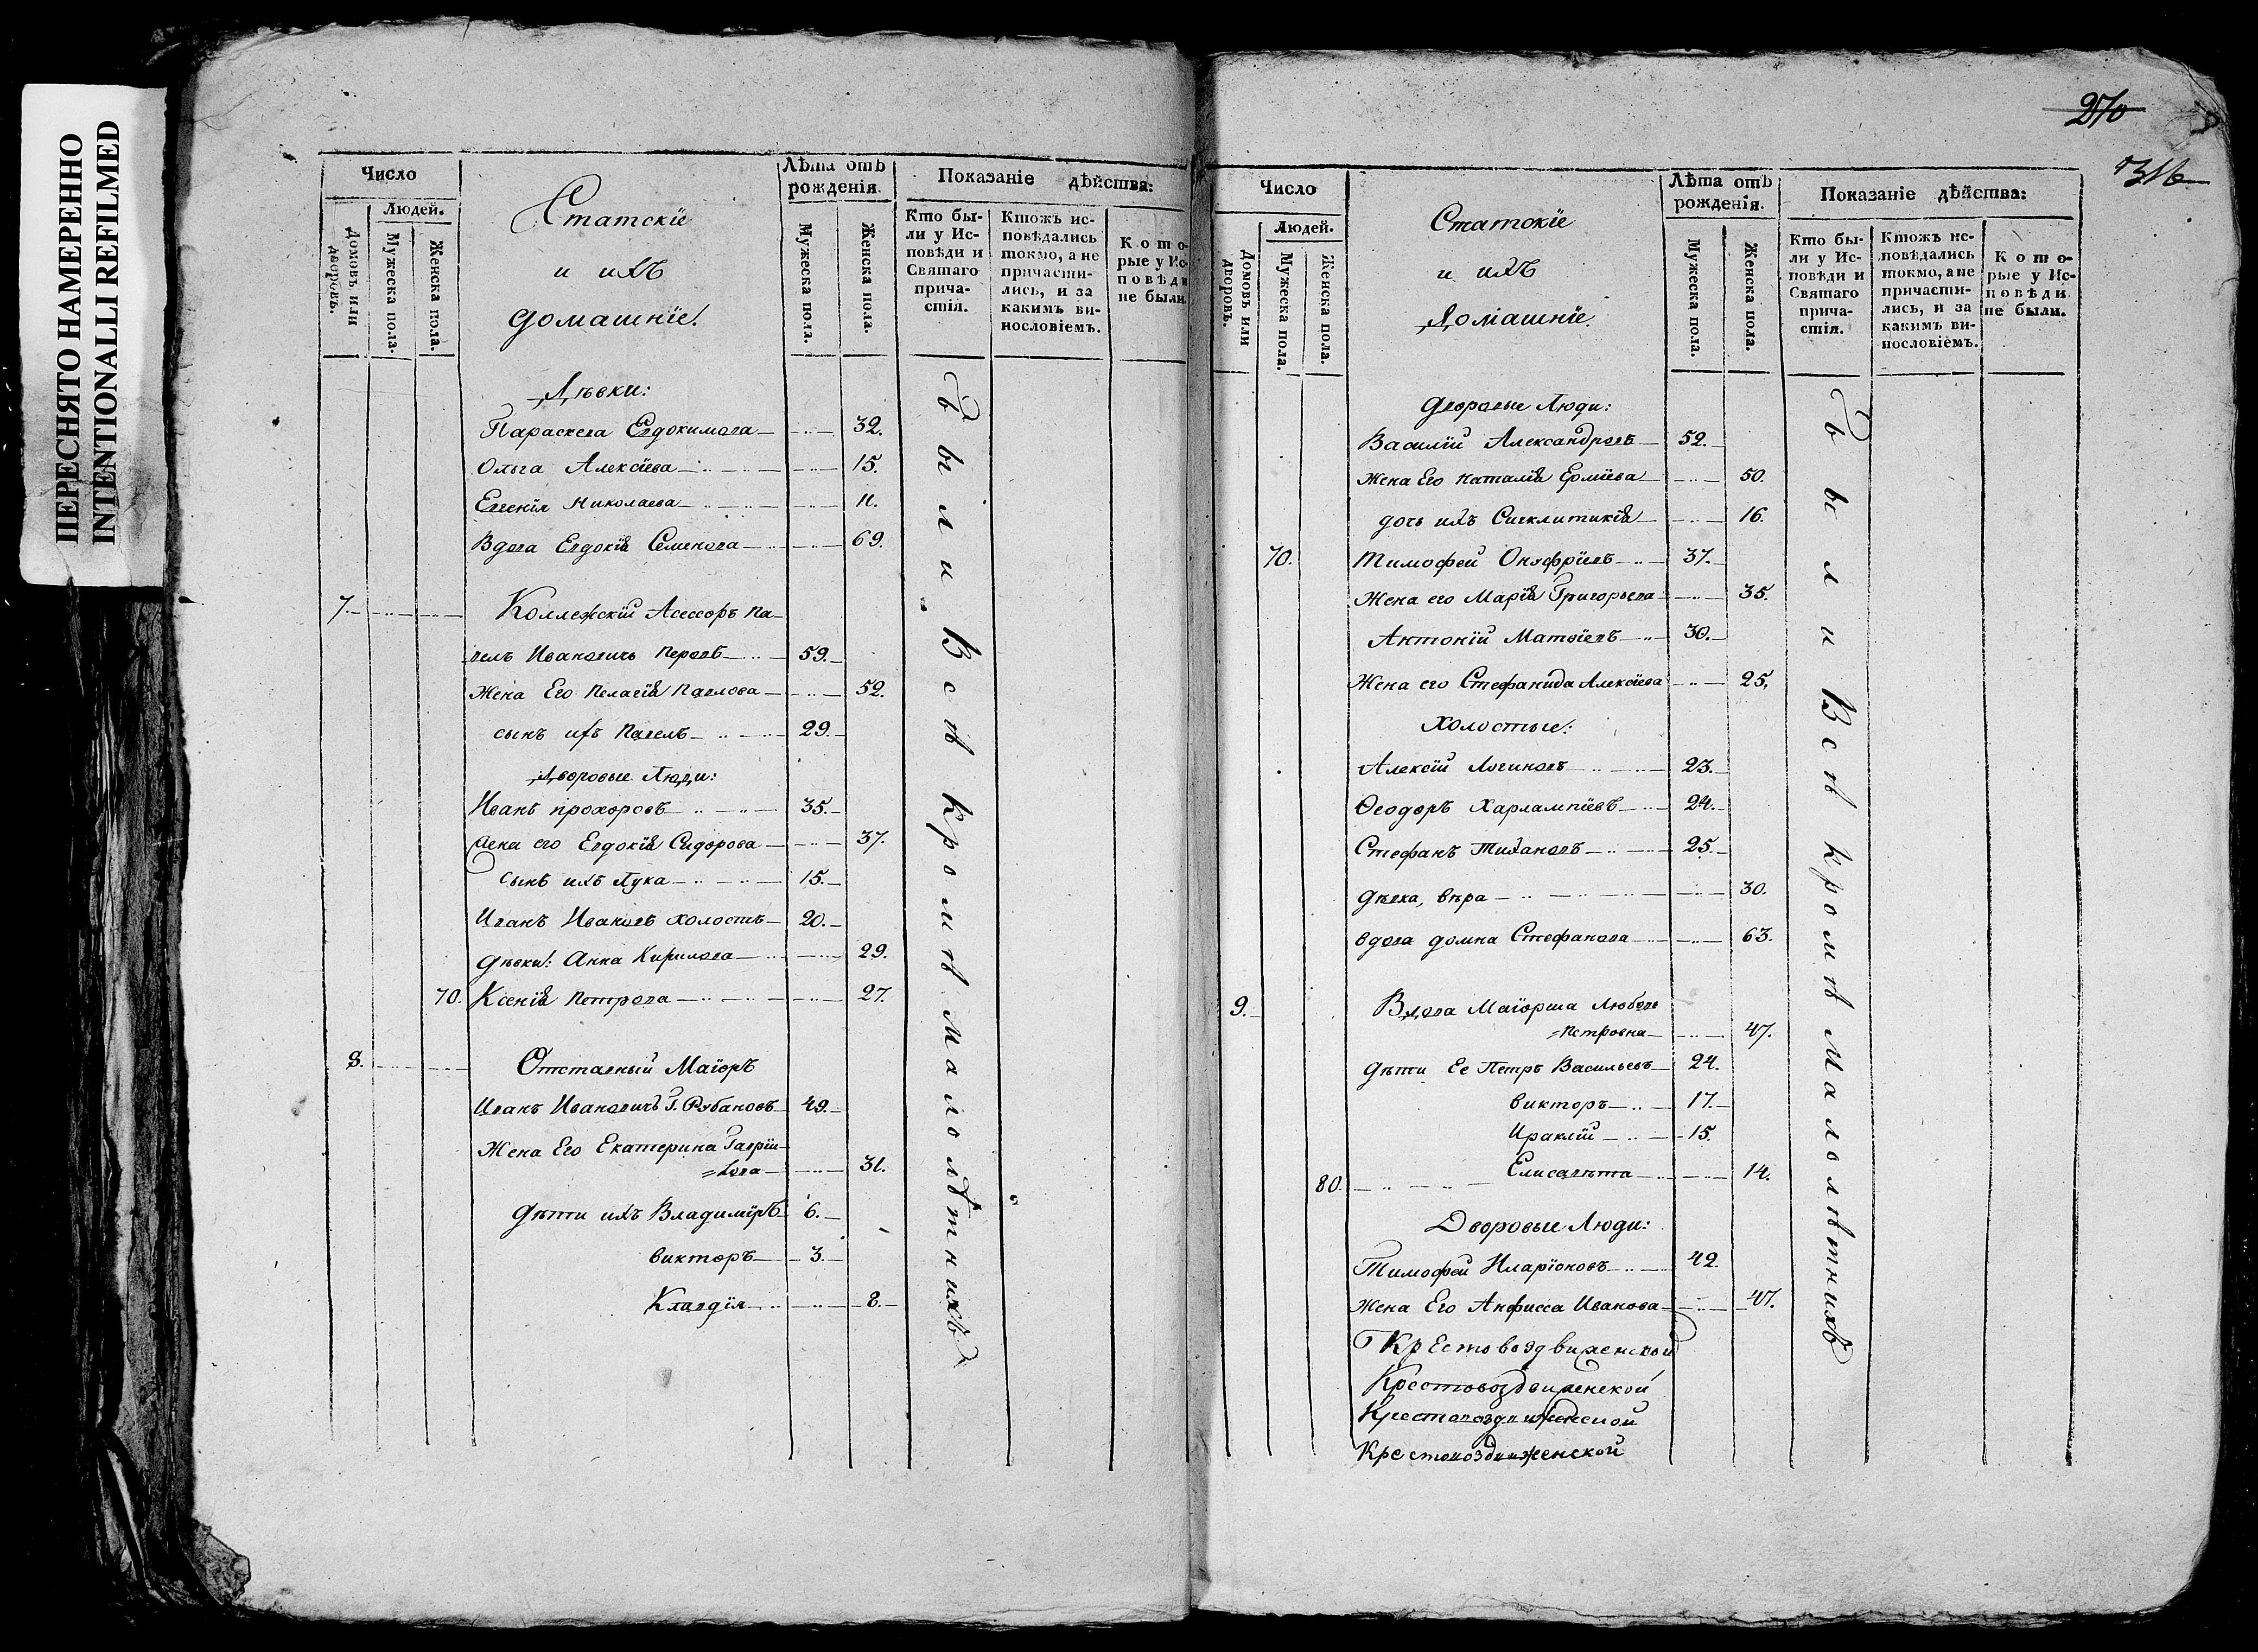 ПЕРЕСНЯТО НАМЕРЕННО
INTENTIONALLI REFILMED
Число
Людей.
Домовъ или дворовъ.
Мужеска пола.
Женска пола.
Статскіе
и ихъ
домашніе.
Лѣта отъ рожденія.
Мужеска пола.
Женска пола.
Показаніе дѣйства:
Кто бы-
ли у Ис-
повѣди и
Святаго
прича-
стія.
Ктожъ ис-
повѣдались
токмо, а не
причасти-
лись, и за
какимъ ви-
нословіемъ.
Кото-
рые у Ис-
повѣди
не были.
Дѣвки:
Параскева Евдокимова 32.
Ольга Алексіева 15.
Евгенія Николаева 11.
Вдова Евдокія Семенова 69.
7. Коллежскій Асессоръ Па-
велъ Ивановичь Перовъ 59.
Жена Его Пелагія Павлова 52.
сынъ ихъ Павелъ 29.
Дворовые Люди:
Иванъ Прохоровъ 35.
Жена его Евдокія Сидорова 37.
Сынъ ихъ Лука 15.
Иванъ Ивановъ холостъ 20.
Дѣвки: Анна Кирилова 29.
70. Ксенія Петрова 27.
8. Отставный Маіоръ
Иванъ Ивановичъ Г. Рубановъ 49.
Жена Его Екатерина Гаврии-
=лова 31.
Дѣти ихъ Владиміръ 6.
Викторъ 3.
Клавдія 8.
Были Всѣ кромѣ малолѣтнихъ
270
316
Число
Людей.
Домовъ или дворовъ.
Мужеска пола.
Женска пола.
Статскіе
и ихъ
Домашніе.
Лѣта отъ рожденія.
Мужеска пола.
Женска пола.
Показаніе дѣйства:
Кто бы-
ли у Ис-
повѣди и
Святаго
прича-
стія.
Ктожъ ис-
повѣдались
токмо, а не
причасти-
лись, и за
какимъ ви-
нословіемъ.
Кото-
рые у Ис-
повѣди
не были.
Дворовые Люди:
Василій Александровъ 52.
Жена Его Наталія Ерміева 50.
дочь ихъ Сигклитикія 16.
70. Тимофей Онуфріевъ 37.
Жена его Марія Григорьева 35.
Антоній Матвіевъ 30.
Жена его Стефанида Алексіева 25.
Холостые:
Алексій Логиновъ 23.
Ѳеодоръ Харлампіевъ 24.
Стефанъ Тихановъ 25.
Дѣвка, Вѣра 30.
Вдова Домна Стефанова 63.
9. Вдова Маіорша Любовь
=Петровна 47.
Дѣти Ее Петръ Васильевъ 24.
Викторъ 17.
Ираклій 15.
80. Елисавета 14.
Дворовые Люди:
Тимофей Иларіоновъ 42.
Жена Его Анфисса Иванова 47.
Крестовоздвиженской
Крестовоздвиженской
Крестовоздвиженской
Крестовоздвиженской
Были Всѣ кромѣ малолѣтнихъ